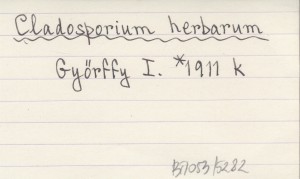 Cladosporium herbarum
Györffy I. *1911 k
B7053/5282